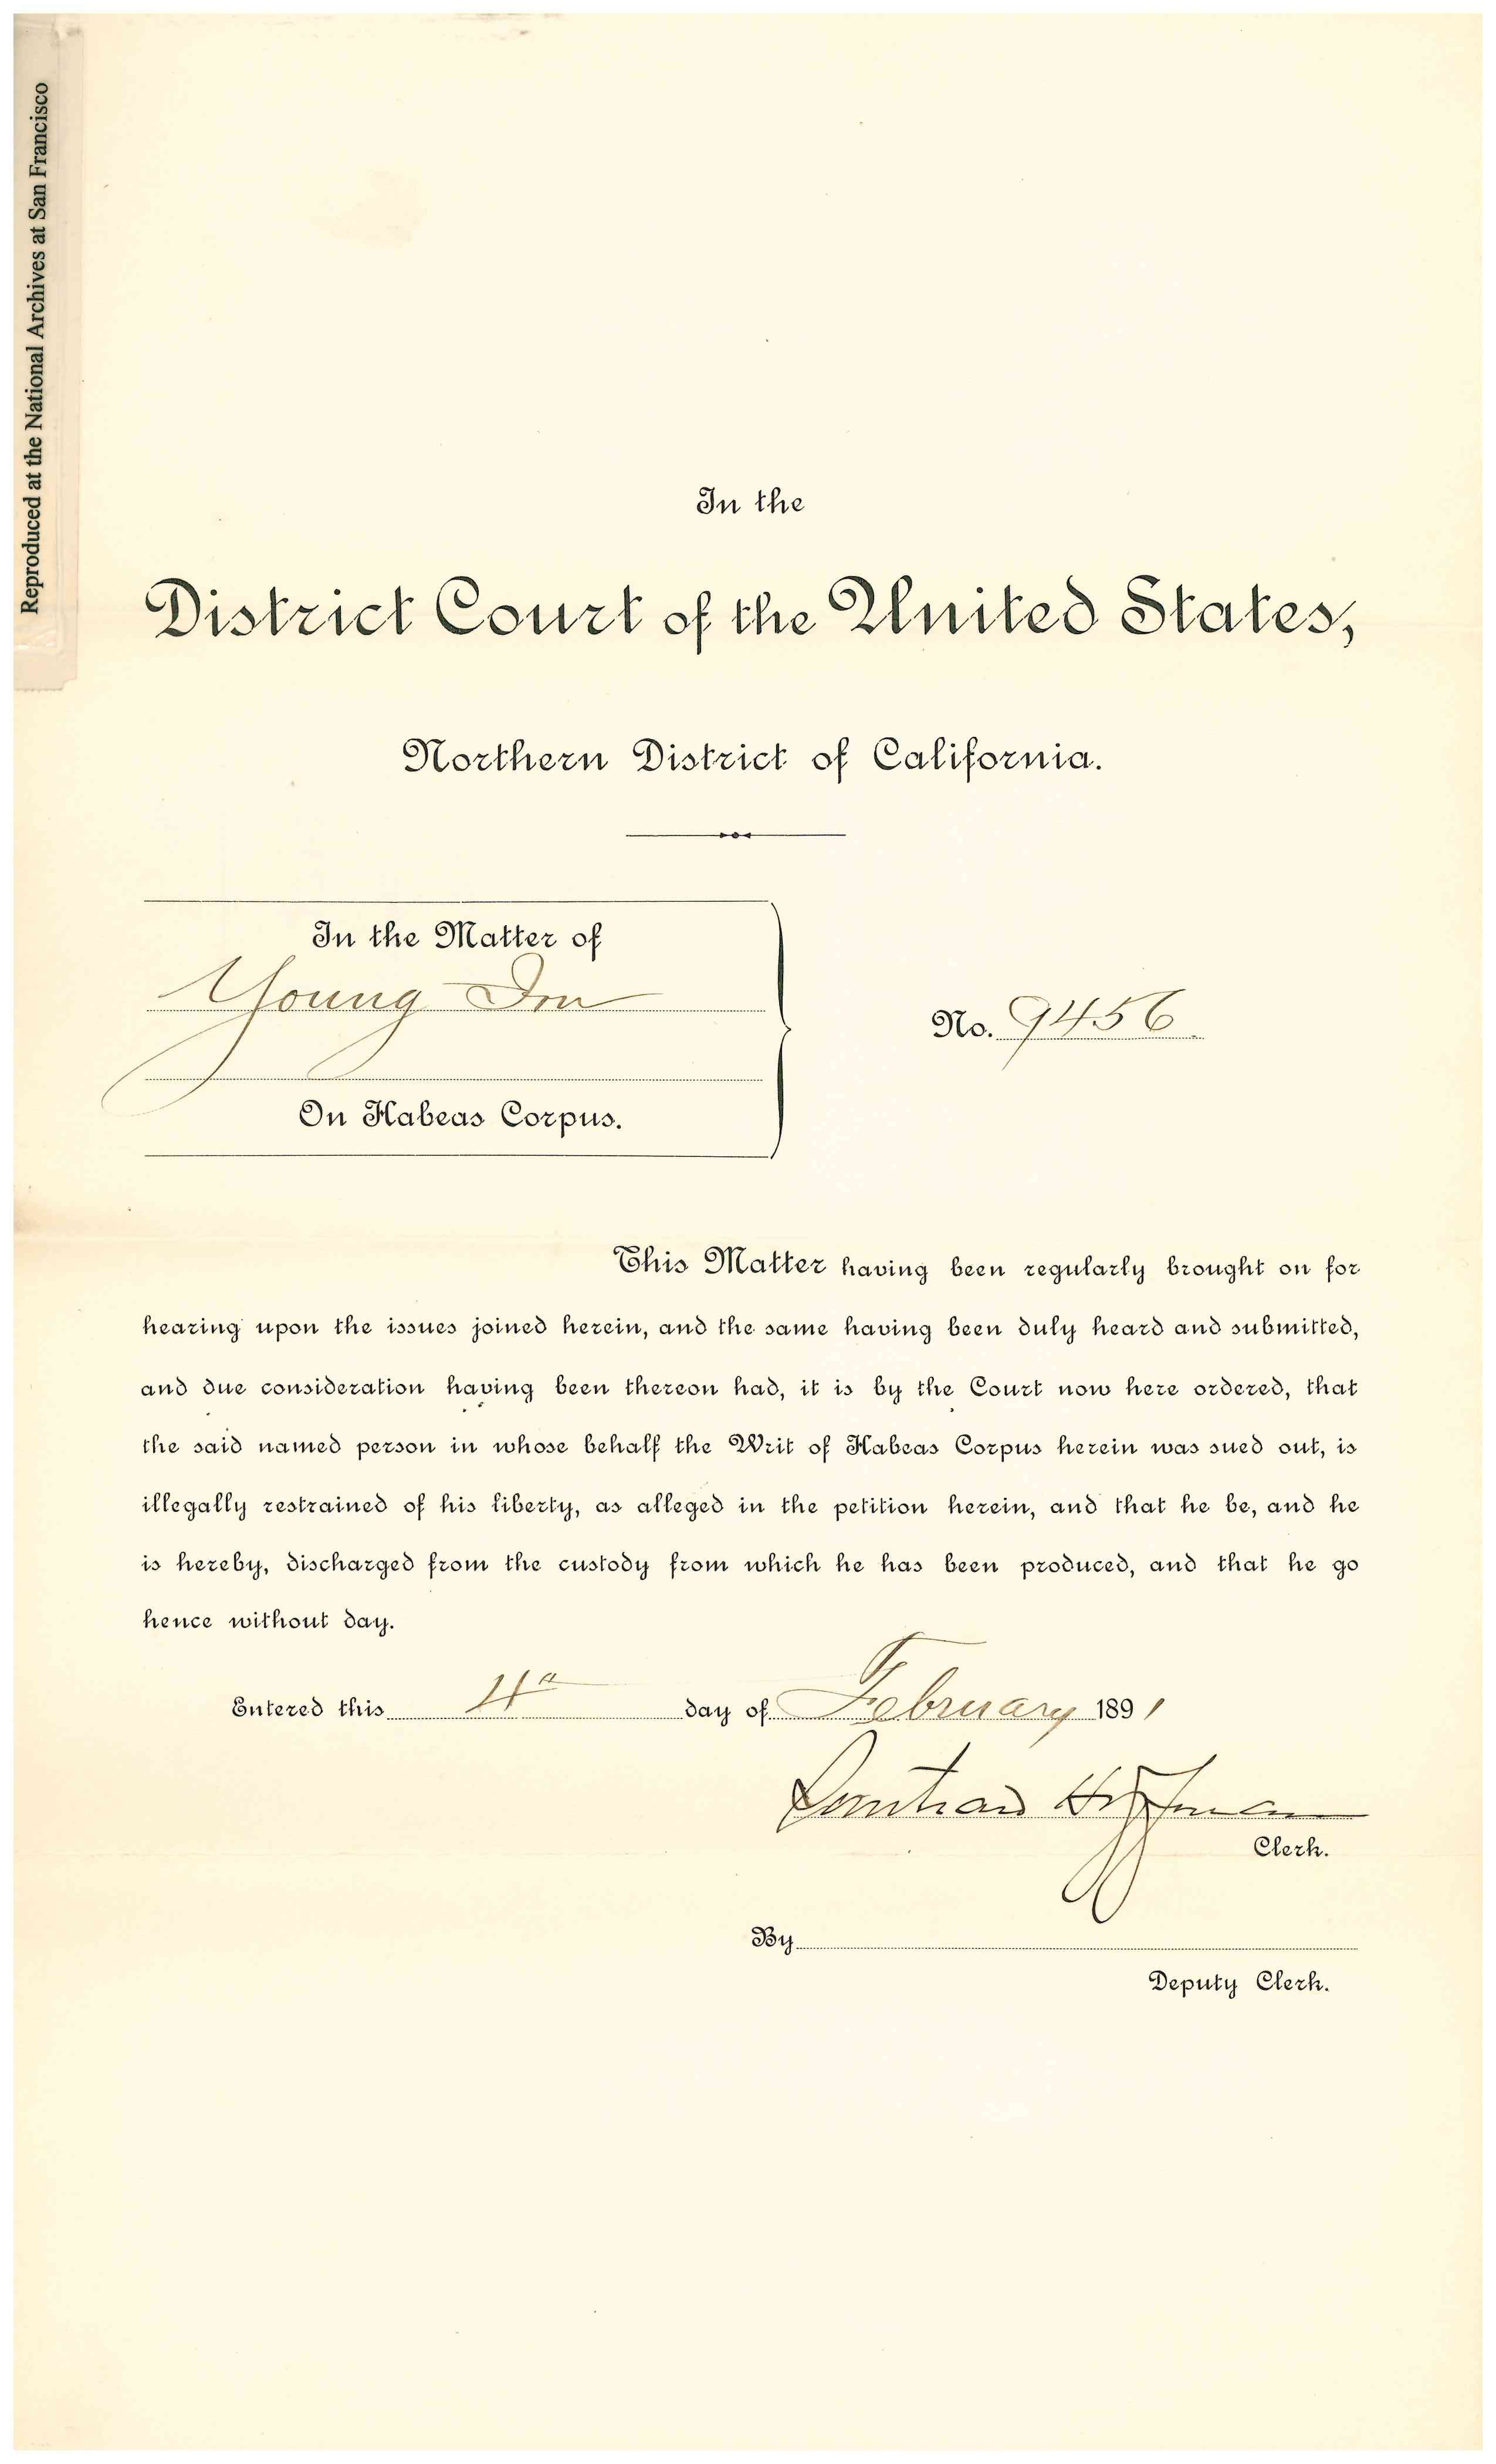 Reproduced at the National Archives at San Francisco
In the
District Court of the United States,
Northern District of California.
In the Matter of
Young
On Habeas Corpus.
No. 9456
This Matter having been regularly brought on for
hearing upon the issues joined herein, and the same having been duly heard and submitted,
and due consideration having been thereon had, it is by the Court now here ordered, that
the said named person in whose behalf the Writ of Habeas Corpus herein was sued out, is
illegally restrained of his liberty, as alleged in the petition herein, and that he be, and he
is hereby, discharged from the custody from which he has been produced, and that he go
hence without day.
Entered this 4th day of February 1891
Southard Hoffman
Clerk.
By
Deputy Clerk.